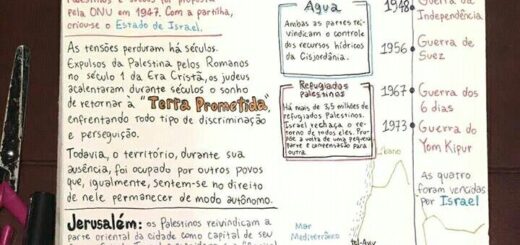 pela ONU em 1947. Com a partilha,
criou-se o Estado de Israel.
As tensões perduram há séculos.
Expulsos da Palestina pelos Romanos
no século 1 da Era Cristã, os judeus
acalentaram durante séculos o sonho
de retornar à "Terra Prometida",
enfrentando todo tipo de discriminação
e perseguição.
Todavia, o território, durante sua
ausência, foi ocupado por outros povos
que, igualmente, sentem-se no direito
de nele permanecer de modo autônomo.
Jerusalém: os Palestinos reivindicam a
parte oriental da cidade como capital de seu
Água
Ambas as partes rei-
vindicam o controle
dos recursos hídricos
da Cisjordânia.
Refugiados
palestinos
Há mais de 3,5 milhões de
refugiados Palestinos.
Israel rechaça o re-
torno de todos eles. Pro-
põe a volta de uma pequena
parte e compensação para
outra.
Líbano
Mar
Mediterrâneo
Tel-Aviv
1948 Guerra da
Independência
1956 Guerra
de Suez
1967 Guerra dos
6 dias
1973 Guerra do
Yom Kipur
As quatro
foram vencidas
por Israel